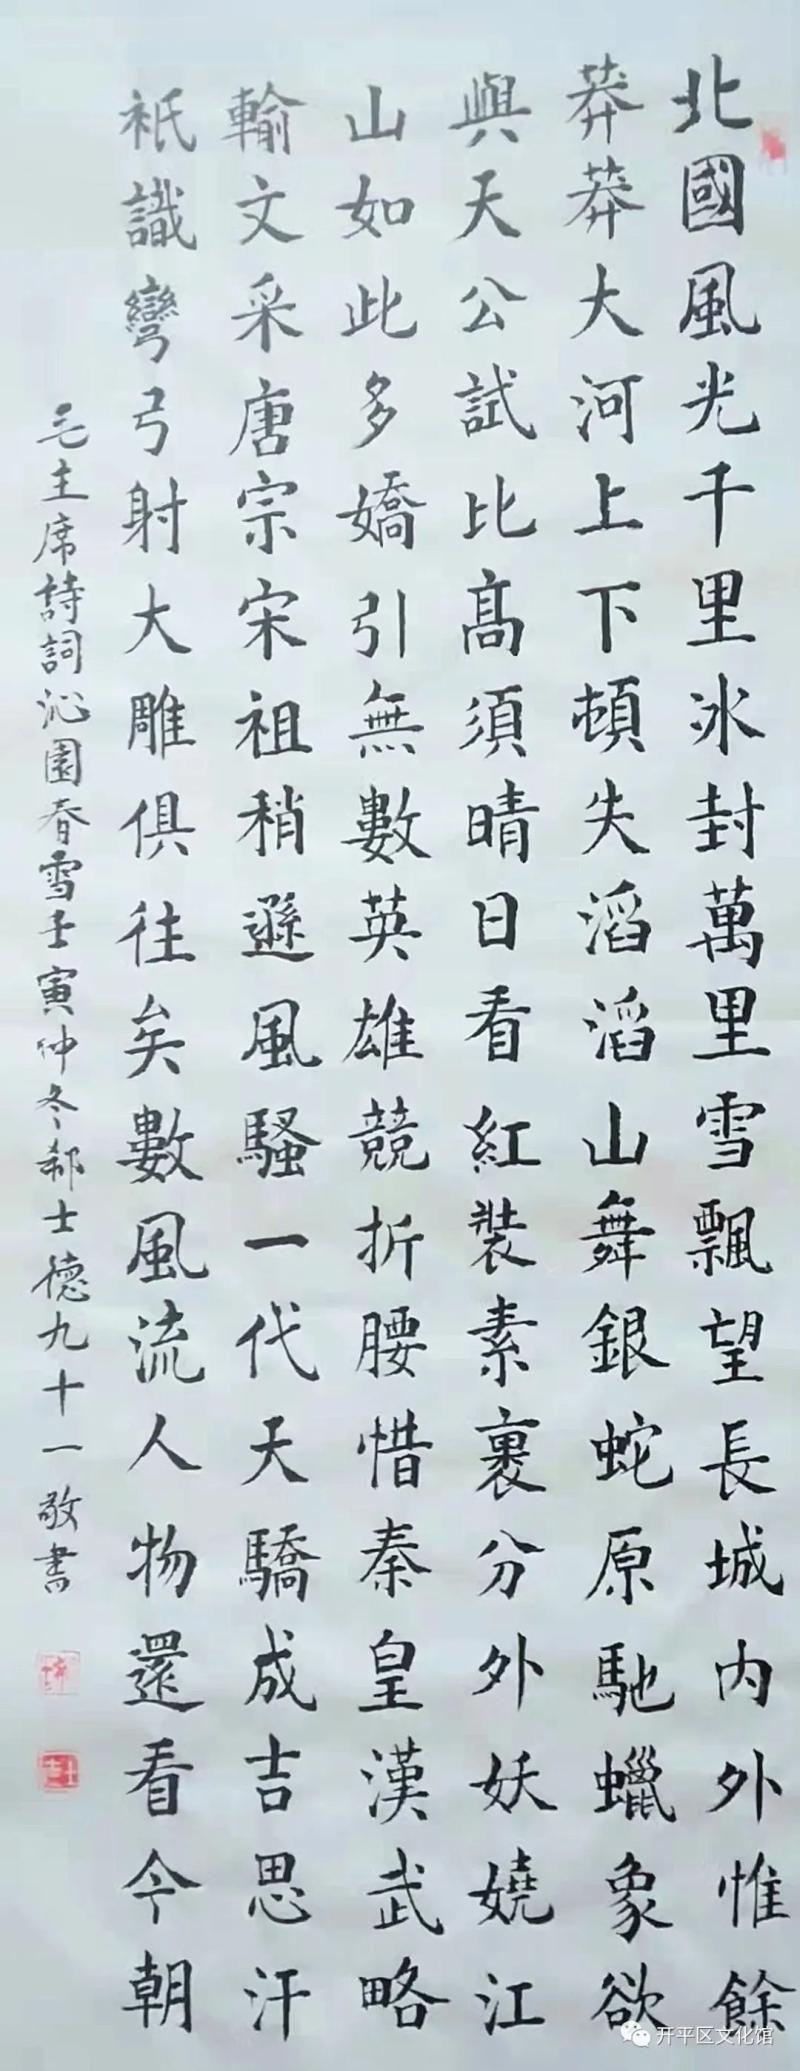 北國風光千里冰封萬里雪飄望長城内外惟餘
莽莽大河上下頓失滔滔山舞銀蛇原馳蠟象欲
與天公試比高須晴日看紅裝素裹分外妖嬈江
山如此多嬌引無數英雄競折腰惜秦皇漢武略
輸文采唐宗宋祖稍遜風騷一代天驕成吉思汗
衹識彎弓射大雕俱往矣數風流人物還看今朝
毛主席詩詞沁園春雪壬寅仲冬郝士德九十一敬書
开平区文化馆